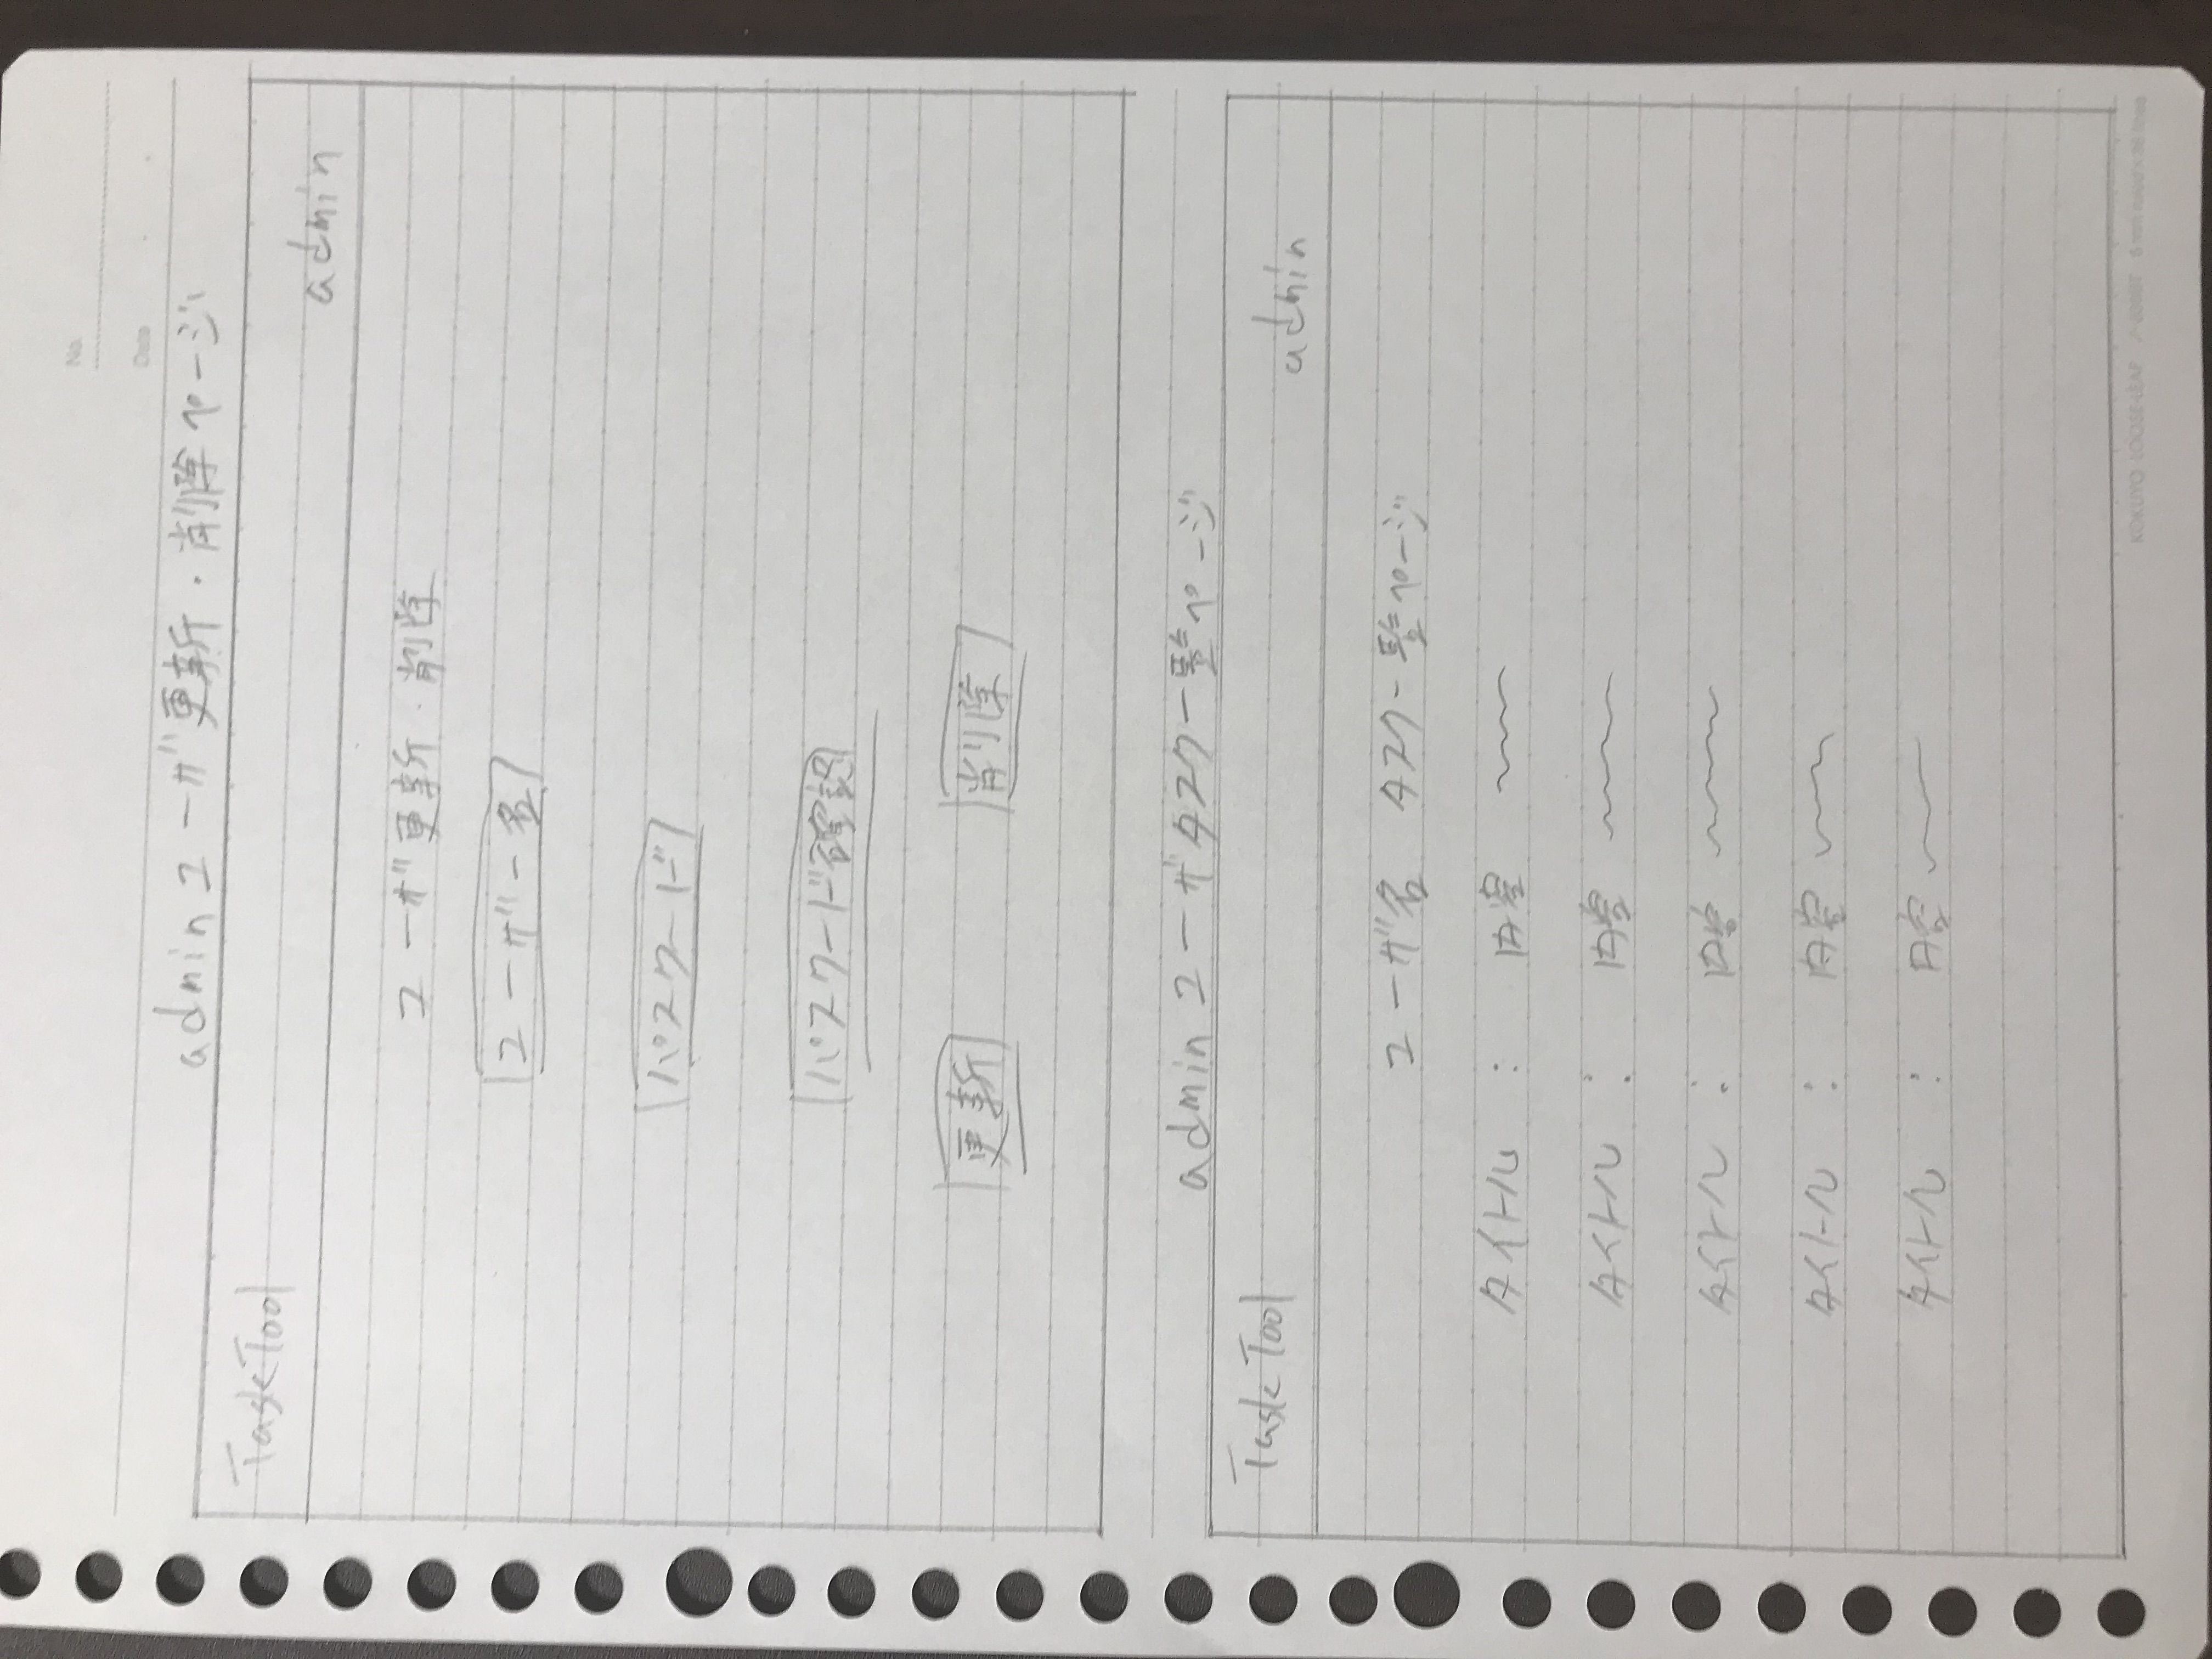 No.
Date
adminユーザ更新・削除ページ
TaskTool
admin
ユーザ更新・削除
ユーザー名
パスワード
パスワード確認
更新 削除
adminユーザタスク一覧ページ
TaskTool
admin
ユーザ名 タスク一覧ページ
タイトル : 内容
タイトル : 内容
タイトル : 内容
タイトル : 内容
タイトル : 内容
KOKUYO LOOSE-LEAF 6 mm ruled